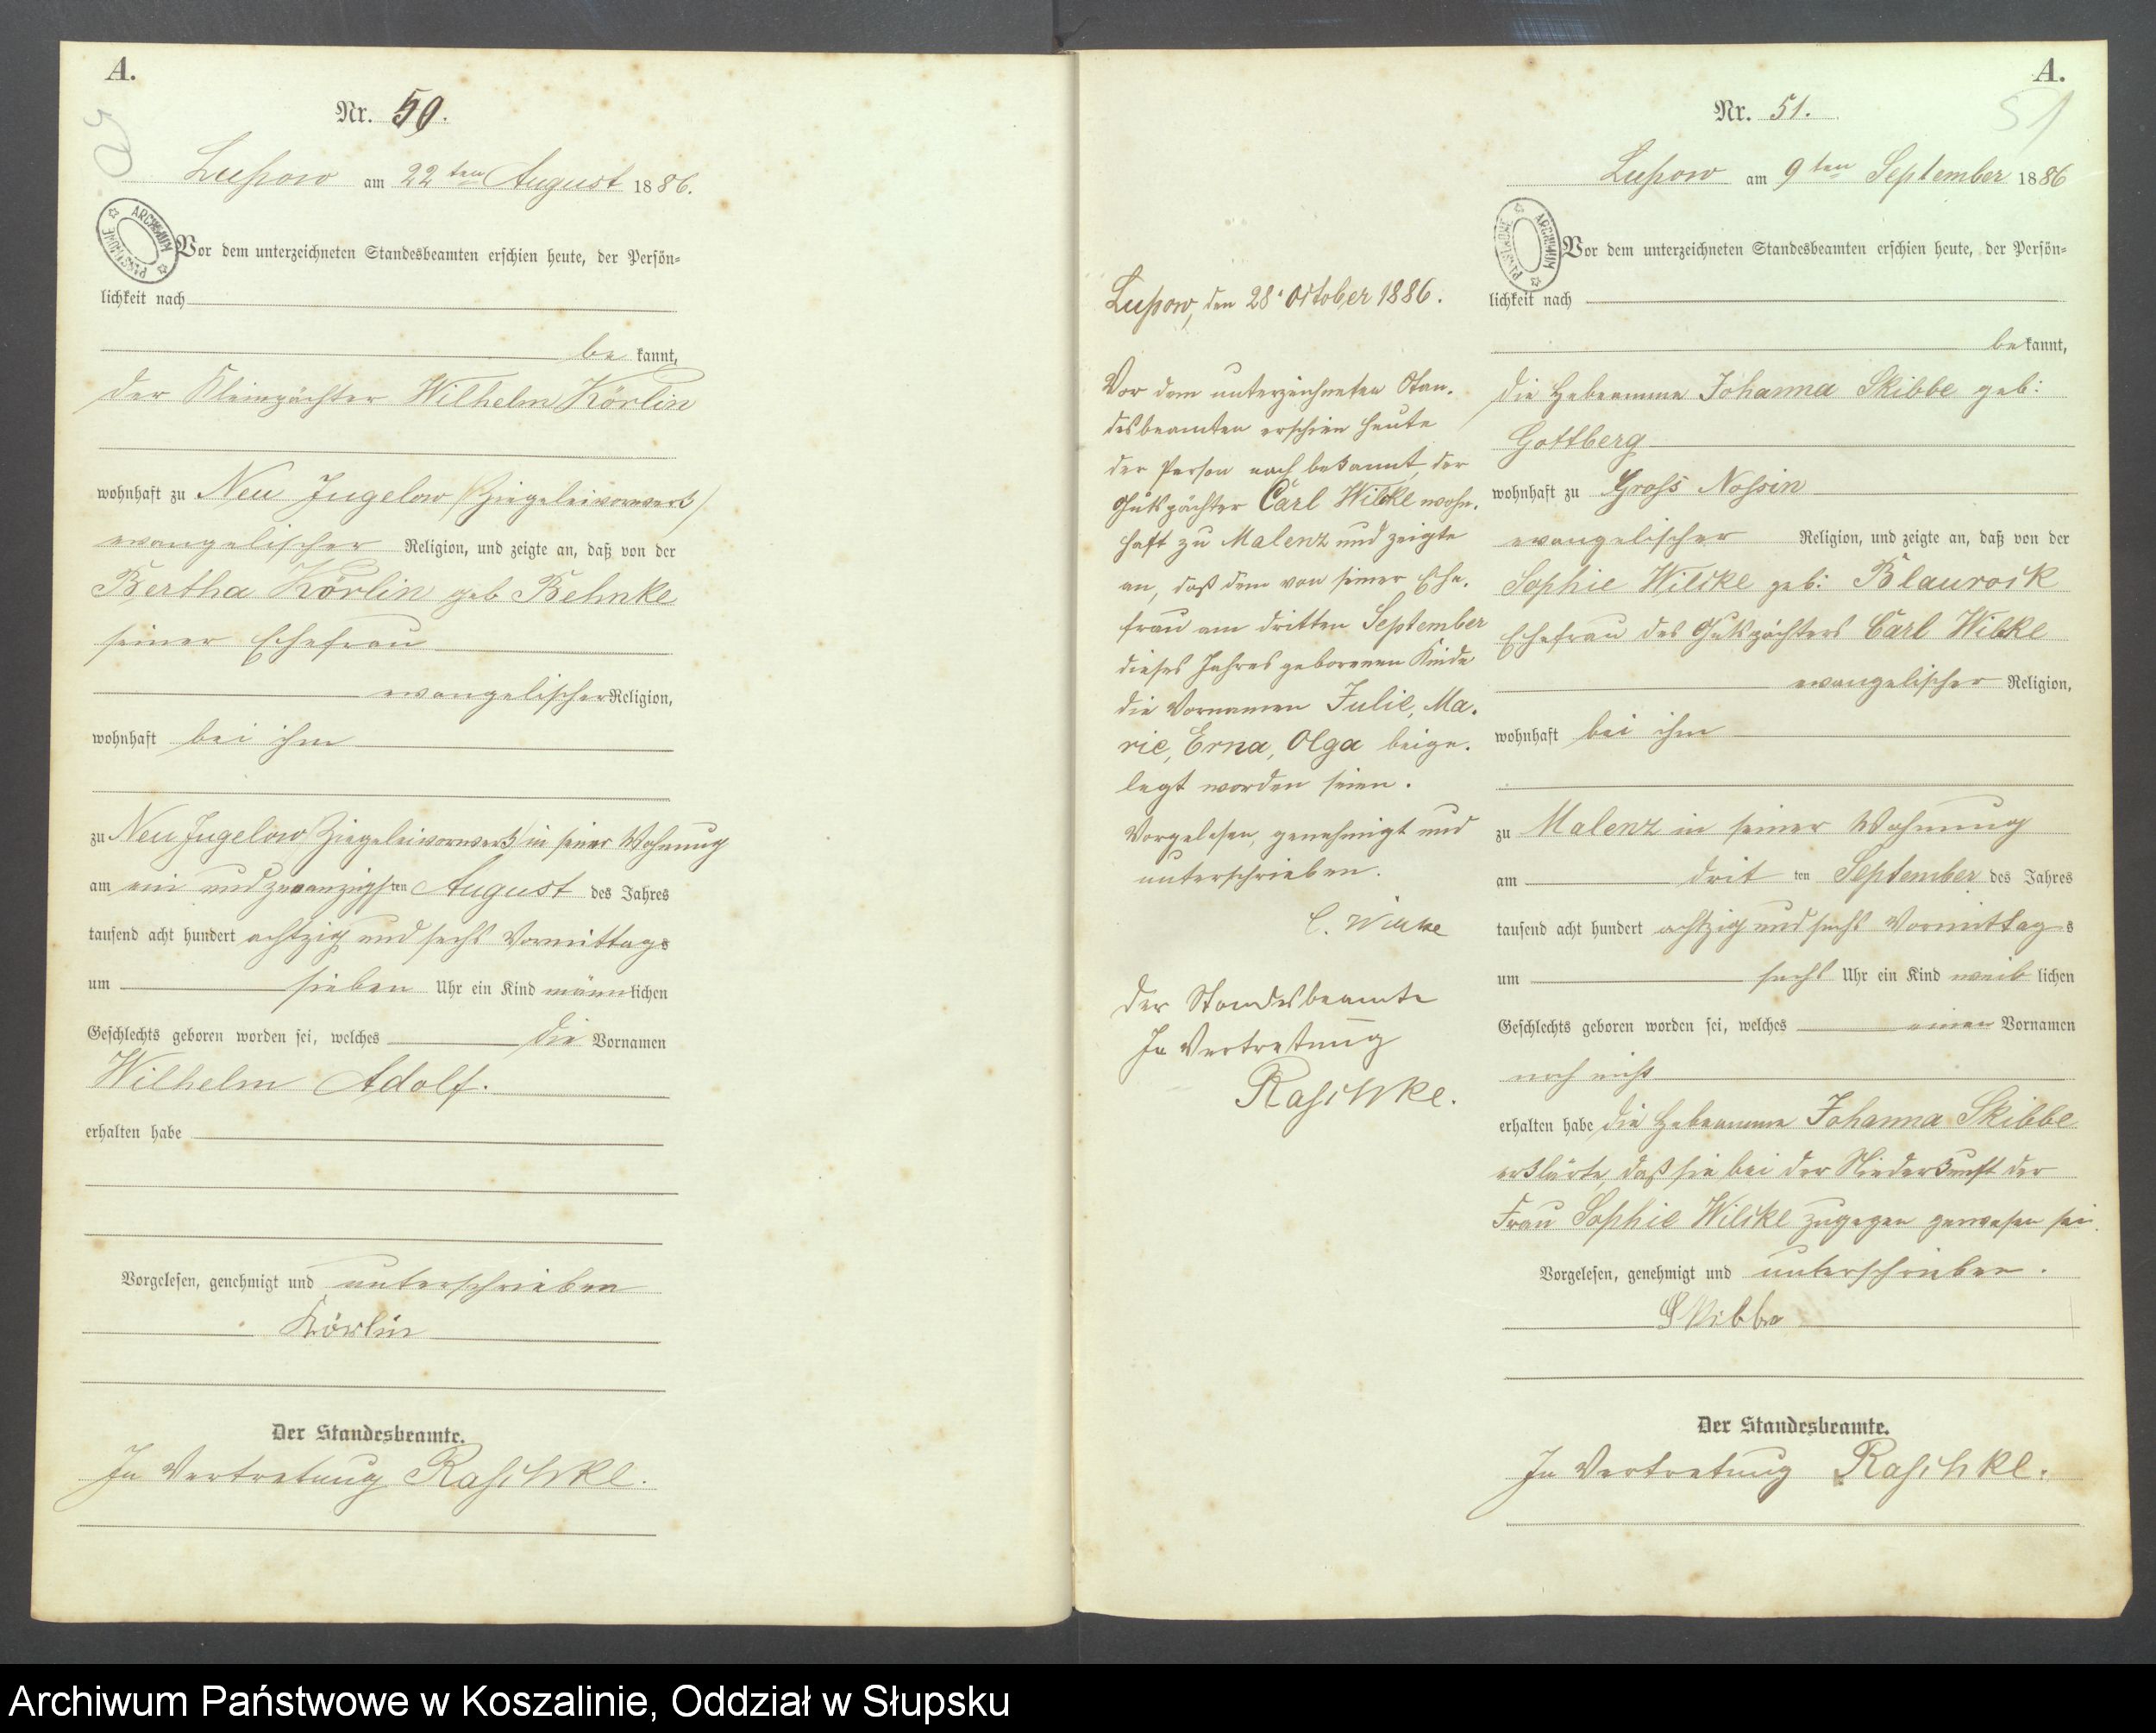 A.
Nr. 50.
50
Lupow am 22ten August 1886.
ARCHIWUM PAŃSTWOWE
Vor dem unterzeichneten Standesbeamten erschien heute, der Persön=
lichkeit nach
be kannt,
der Kleinpächter Wilhelm Körlin
wohnhaft zu Neu Jugelow /Ziegeleivorwerk/
evangelischer Religion, und zeigte an, daß von der
Bertha Körlin geb Behnke
seiner Ehefrau
evangelischer Religion,
wohnhaft bei ihm
zu Neu Jugelow /Ziegeleivorwerk/ in seiner Wohnung
am ein und zwanzigsten August des Jahres
tausend acht hundert achtzig und sechs Vormittags
um sieben Uhr ein Kind männlichen
Geschlechts geboren worden sei, welches die Vornamen
Wilhelm Adolf.
erhalten habe
Vorgelesen, genehmigt und unterschrieben
Körlin
Der Standesbeamte.
In Vertretung Raschke.
Lupow, den 28. October 1886.
Vor dem unterzeichneten Stan-
desbeamten erschien heute
der Person nach bekannt, der
Gutspächter Carl Wilcke wohn-
haft zu Malenz und zeigte
an, daß dem von seiner Ehe-
frau am dritten September
dieses Jahres geborenen Kinde
die Vornamen Julie, Ma-
rie, Erna, Olga beige-
legt worden seien.
Vorgelesen, genehmigt und
unterschrieben.
C. Wilcke
Der Standesbeamte
In Vertretung
Raschke.
A.
Nr. 51.
51
Lupow am 9ten September 1886
ARCHIWUM PAŃSTWOWE
Vor dem unterzeichneten Standesbeamten erschien heute, der Persön=
lichkeit nach
be kannt,
die Hebeamme Johanna Skibbe geb:
Gottberg
wohnhaft zu Gross Nossin
evangelischer Religion, und zeigte an, daß von der
Sophie Wilcke geb: Blaurock
Ehefrau des Gutspächters Carl Wilcke
evangelischer Religion,
wohnhaft bei ihm
zu Malenz in seiner Wohnung
am dritten September des Jahres
tausend acht hundert achtzig und sechs Vormittags
um sechs Uhr ein Kind weiblichen
Geschlechts geboren worden sei, welches einen Vornamen
noch nicht
erhalten habe die Hebeamme Johanna Skibbe
erklärte, daß sie bei der Niederkunft der
Frau Sophie Wilcke zugegen gewesen sei.
Vorgelesen, genehmigt und unterschrieben.
Skibbe
Der Standesbeamte.
In Vertretung Raschke.
Archiwum Państwowe w Koszalinie, Oddział w Słupsku